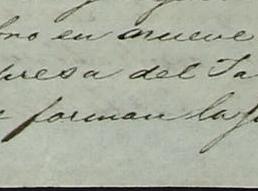 ono en nueve
presa del Ta
e forman la fu